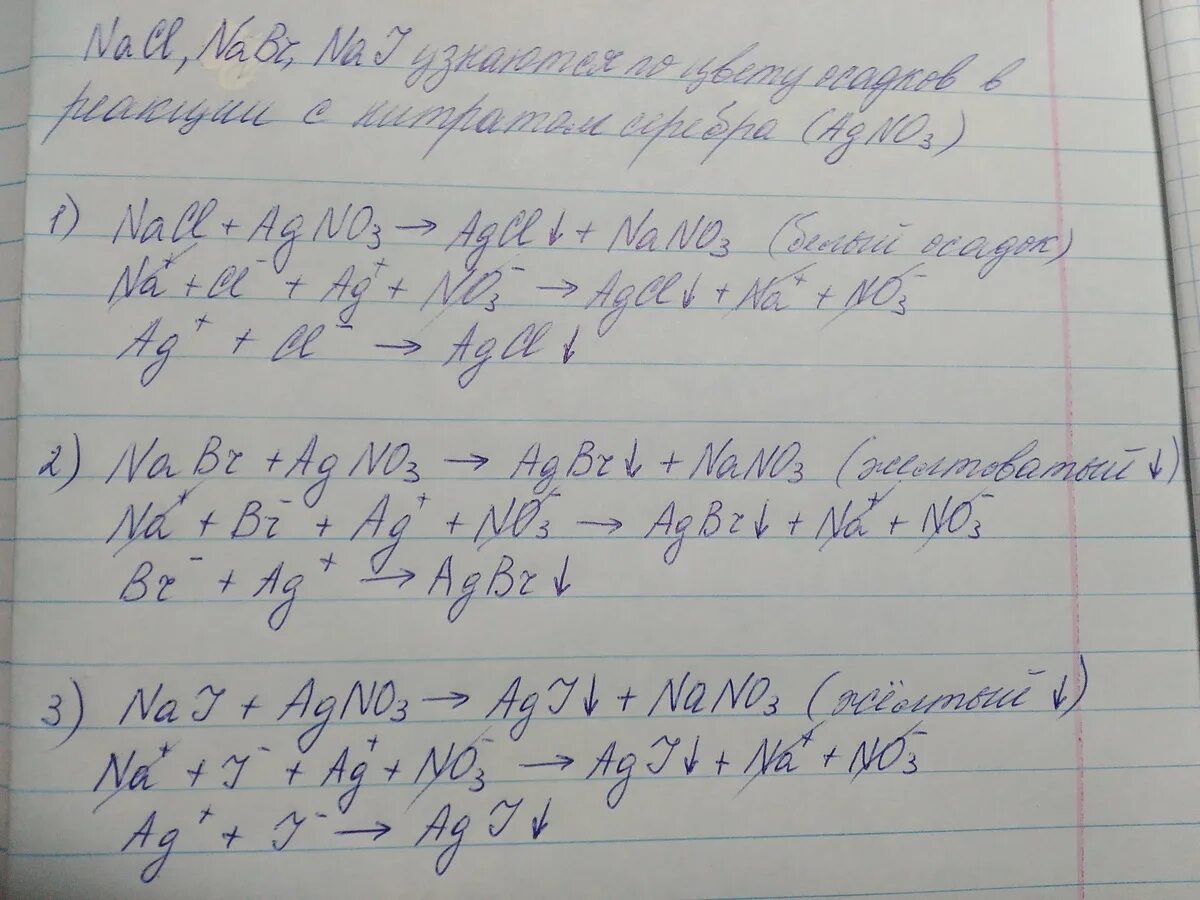 NaCl, NaBr, NaJ узнаются по цвету осадков в
реакции с нитратом серебра (AgNO₃)
1) NaCl + AgNO₃ → AgCl↓ + NaNO₃ (белый осадок)
Na⁺ + Cl⁻ + Ag⁺ + NO₃⁻ → AgCl↓ + Na⁺ + NO₃⁻
Ag⁺ + Cl⁻ → AgCl↓
2) NaBr + AgNO₃ → AgBr↓ + NaNO₃ (желтоватый ↓)
Na⁺ + Br⁻ + Ag⁺ + NO₃⁻ → AgBr↓ + Na⁺ + NO₃⁻
Br⁻ + Ag⁺ → AgBr↓
3) NaJ + AgNO₃ → AgJ↓ + NaNO₃ (жёлтый ↓)
Na⁺ + J⁻ + Ag⁺ + NO₃⁻ → AgJ↓ + Na⁺ + NO₃⁻
Ag⁺ + J⁻ → AgJ↓